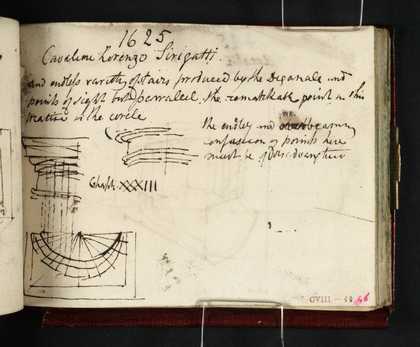 1625
Cavaliere Lorenzo Sirigatti
and endless variety of stairs produced by the Diagonals and
points of sight but parralell. the remarkable point in this
treatise is the circle
the endless and
confusion of points here
must be
Chapt. XXXIII
CVIII – 58 46